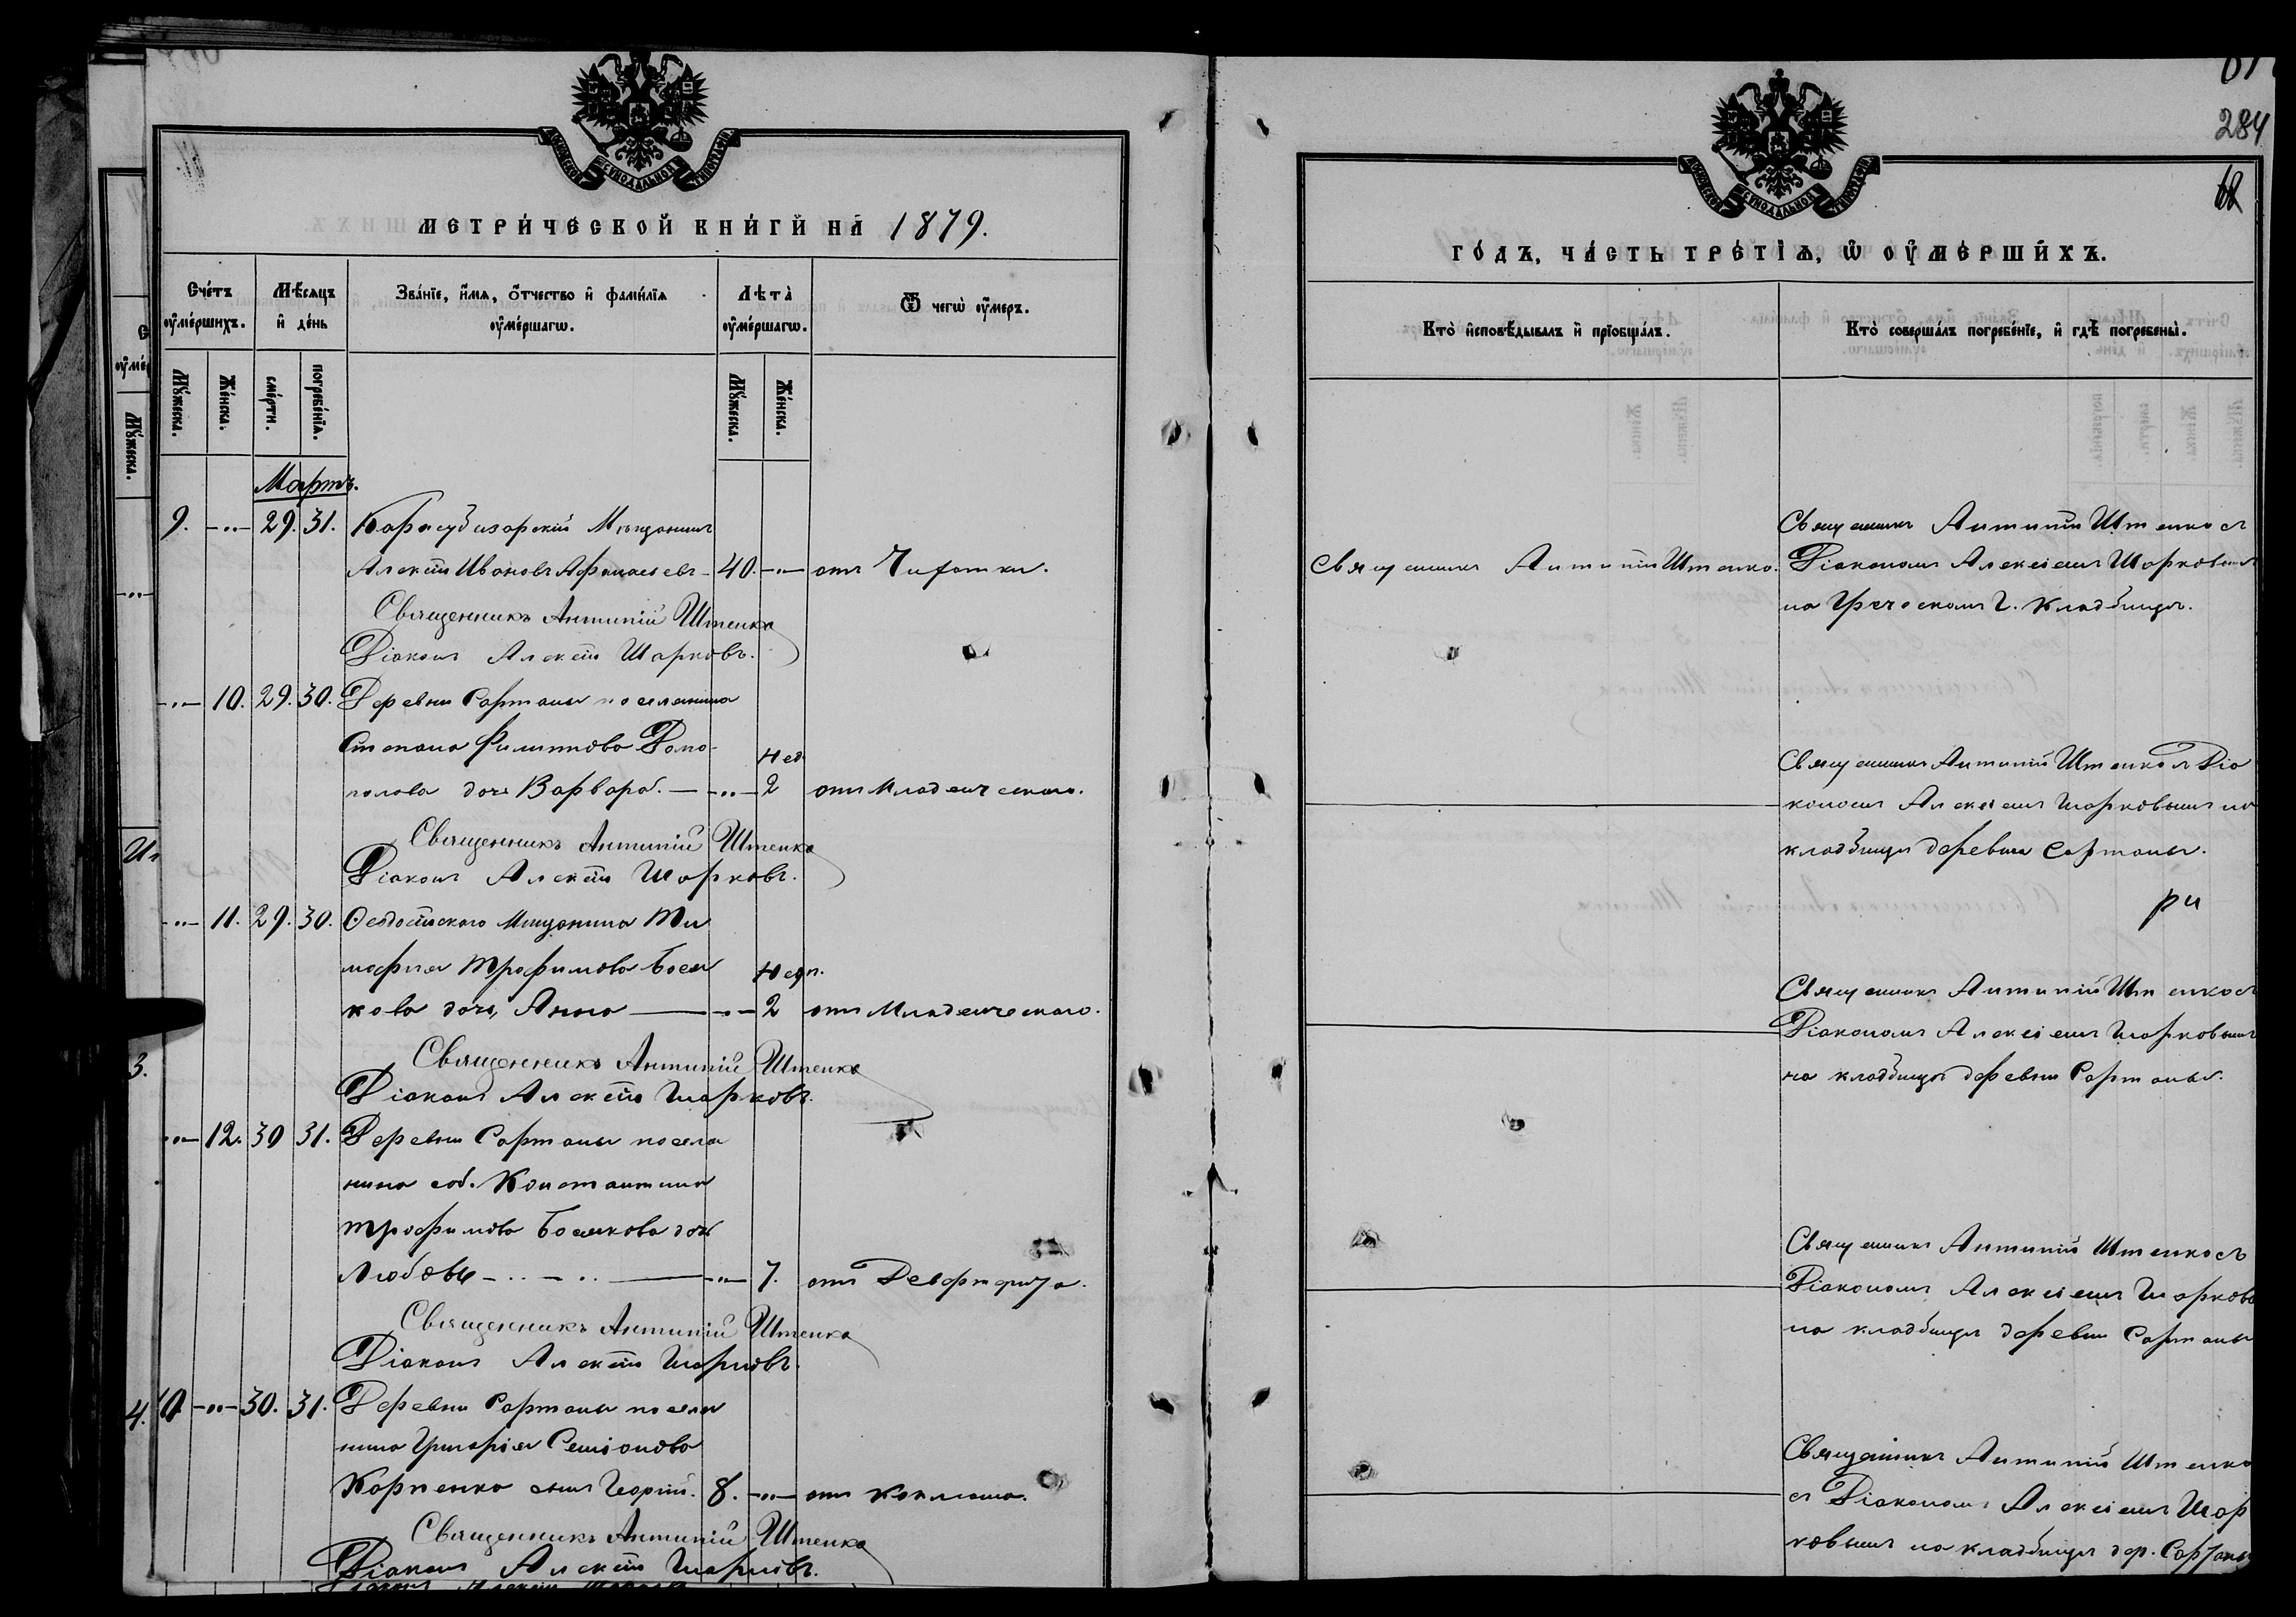 МЕТРИ́ЧЕСКОЙ КНИ́ГИ НА́ 1879.
Сче́тъ оу҆ме́ршихъ.
Мѣ́сяцъ и҆ де́нь
Зва́нїе, и҆́мѧ, ѻ҆́тчество и҆ фами́лїѧ оу҆ме́ршагѡ.
Лѣта̀ оу҆ме́ршагѡ.
Ѿ чегѡ̀ оу҆́меръ.
Мꙋ́жеска.
Же́нска.
сме́рти.
погребе́нїѧ.
Мꙋ́жеска.
Же́нска.
Мартъ.
9. -"- 29. 31. Карасубазарскій Мѣщанинъ
Алексѣй Ивановъ Афанасьевъ - 40. -"- отъ Чахотки.
Священникъ Антипій Штенко
Діаконъ Алексѣй Шарковъ.
-"- 10. 29. 30. Деревни Сартаны поселянина
Степана Филиппова Попо-
Нед.
полова дочь Варвара. - -"- 2 отъ Младенческаго.
Священникъ Антипій Штенко
Діаконъ Алексѣй Шарковъ.
-"- 11. 29. 30. Ѳеодосійскаго Мѣщанина Ти
мофея Трофимова Бося
Недѣл.
кова дочь, Анна - -"- 2 отъ Младенческаго.
Священникъ Антипій Штенко
Діаконъ Алексѣй Шарковъ.
-"- 12. 30 31. Деревни Сартаны поселя
нина соб. Константина
Трофимова Босякова дочь
Любовь - -"- 7. отъ Девфтерита.
Священникъ Антипій Штенко
Діаконъ Алексѣй Шарковъ.
10 -"- 30. 31. Деревни Сартаны поселя
нина Григорія Семіонова
Карпенко сынъ Георгій. 8. -"- отъ Коклюша.
Священникъ Антипій Штенко
Діаконъ Алексѣй Шарковъ.
284
68
ГО́ДЪ, ЧА́СТЬ ТРЕ́ТЇѦ, Ѡ҆ ОУ҆МЕ́РШИХЪ.
Кто̀ и҆сповѣ́дывалъ и҆ прїѡбща́лъ.
Кто̀ соверша́лъ погребе́нїе, и҆ гдѣ̀ погребены̀.
Священникъ Антипій Штенко.
Священникъ Антипій Штенко съ
Діакономъ Алексіемъ Шарковымъ
на Греческомъ Г. Кладбищѣ.
Священникъ Антипій Штенко съ Діа
кономъ Алексіемъ Шарковымъ на
кладбищѣ деревни Сартаны.
ри
Священникъ Антипій Штенко съ
Діакономъ Алексіемъ Шарковымъ
на кладбищѣ деревни Сартаны.
Священникъ Антипій Штенко съ
Діакономъ Алексіемъ Шарковы
на кладбищѣ деревни Сартаны
Священникъ Антипій Штенко
съ Діакономъ Алексіемъ Шар
ковымъ на кладбищѣ дер. Сартаны